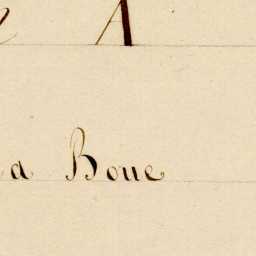 A
a Boue